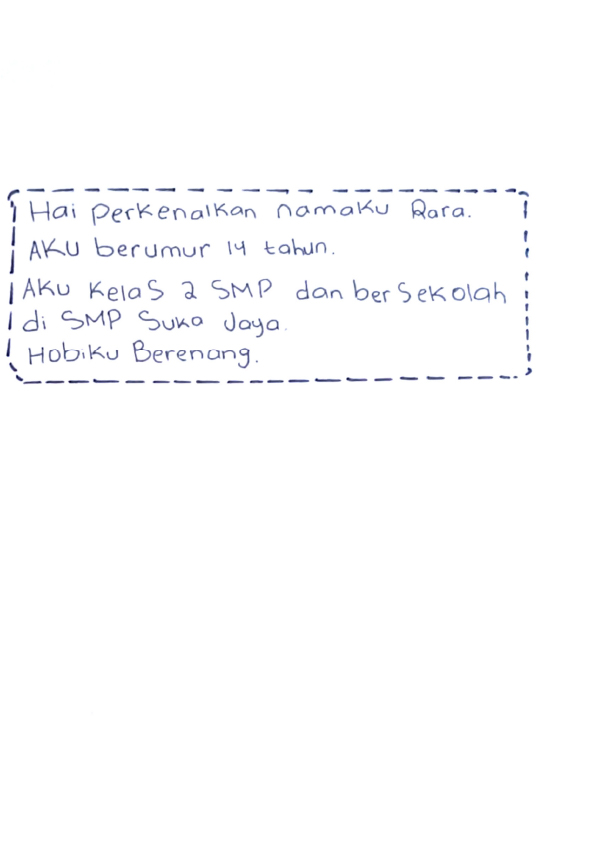 Hai perkenalkan namaku Rara.
Aku berumur 14 tahun.
Aku kelas 2 SMP dan bersekolah
di SMP Suka Jaya.
Hobiku Berenang.